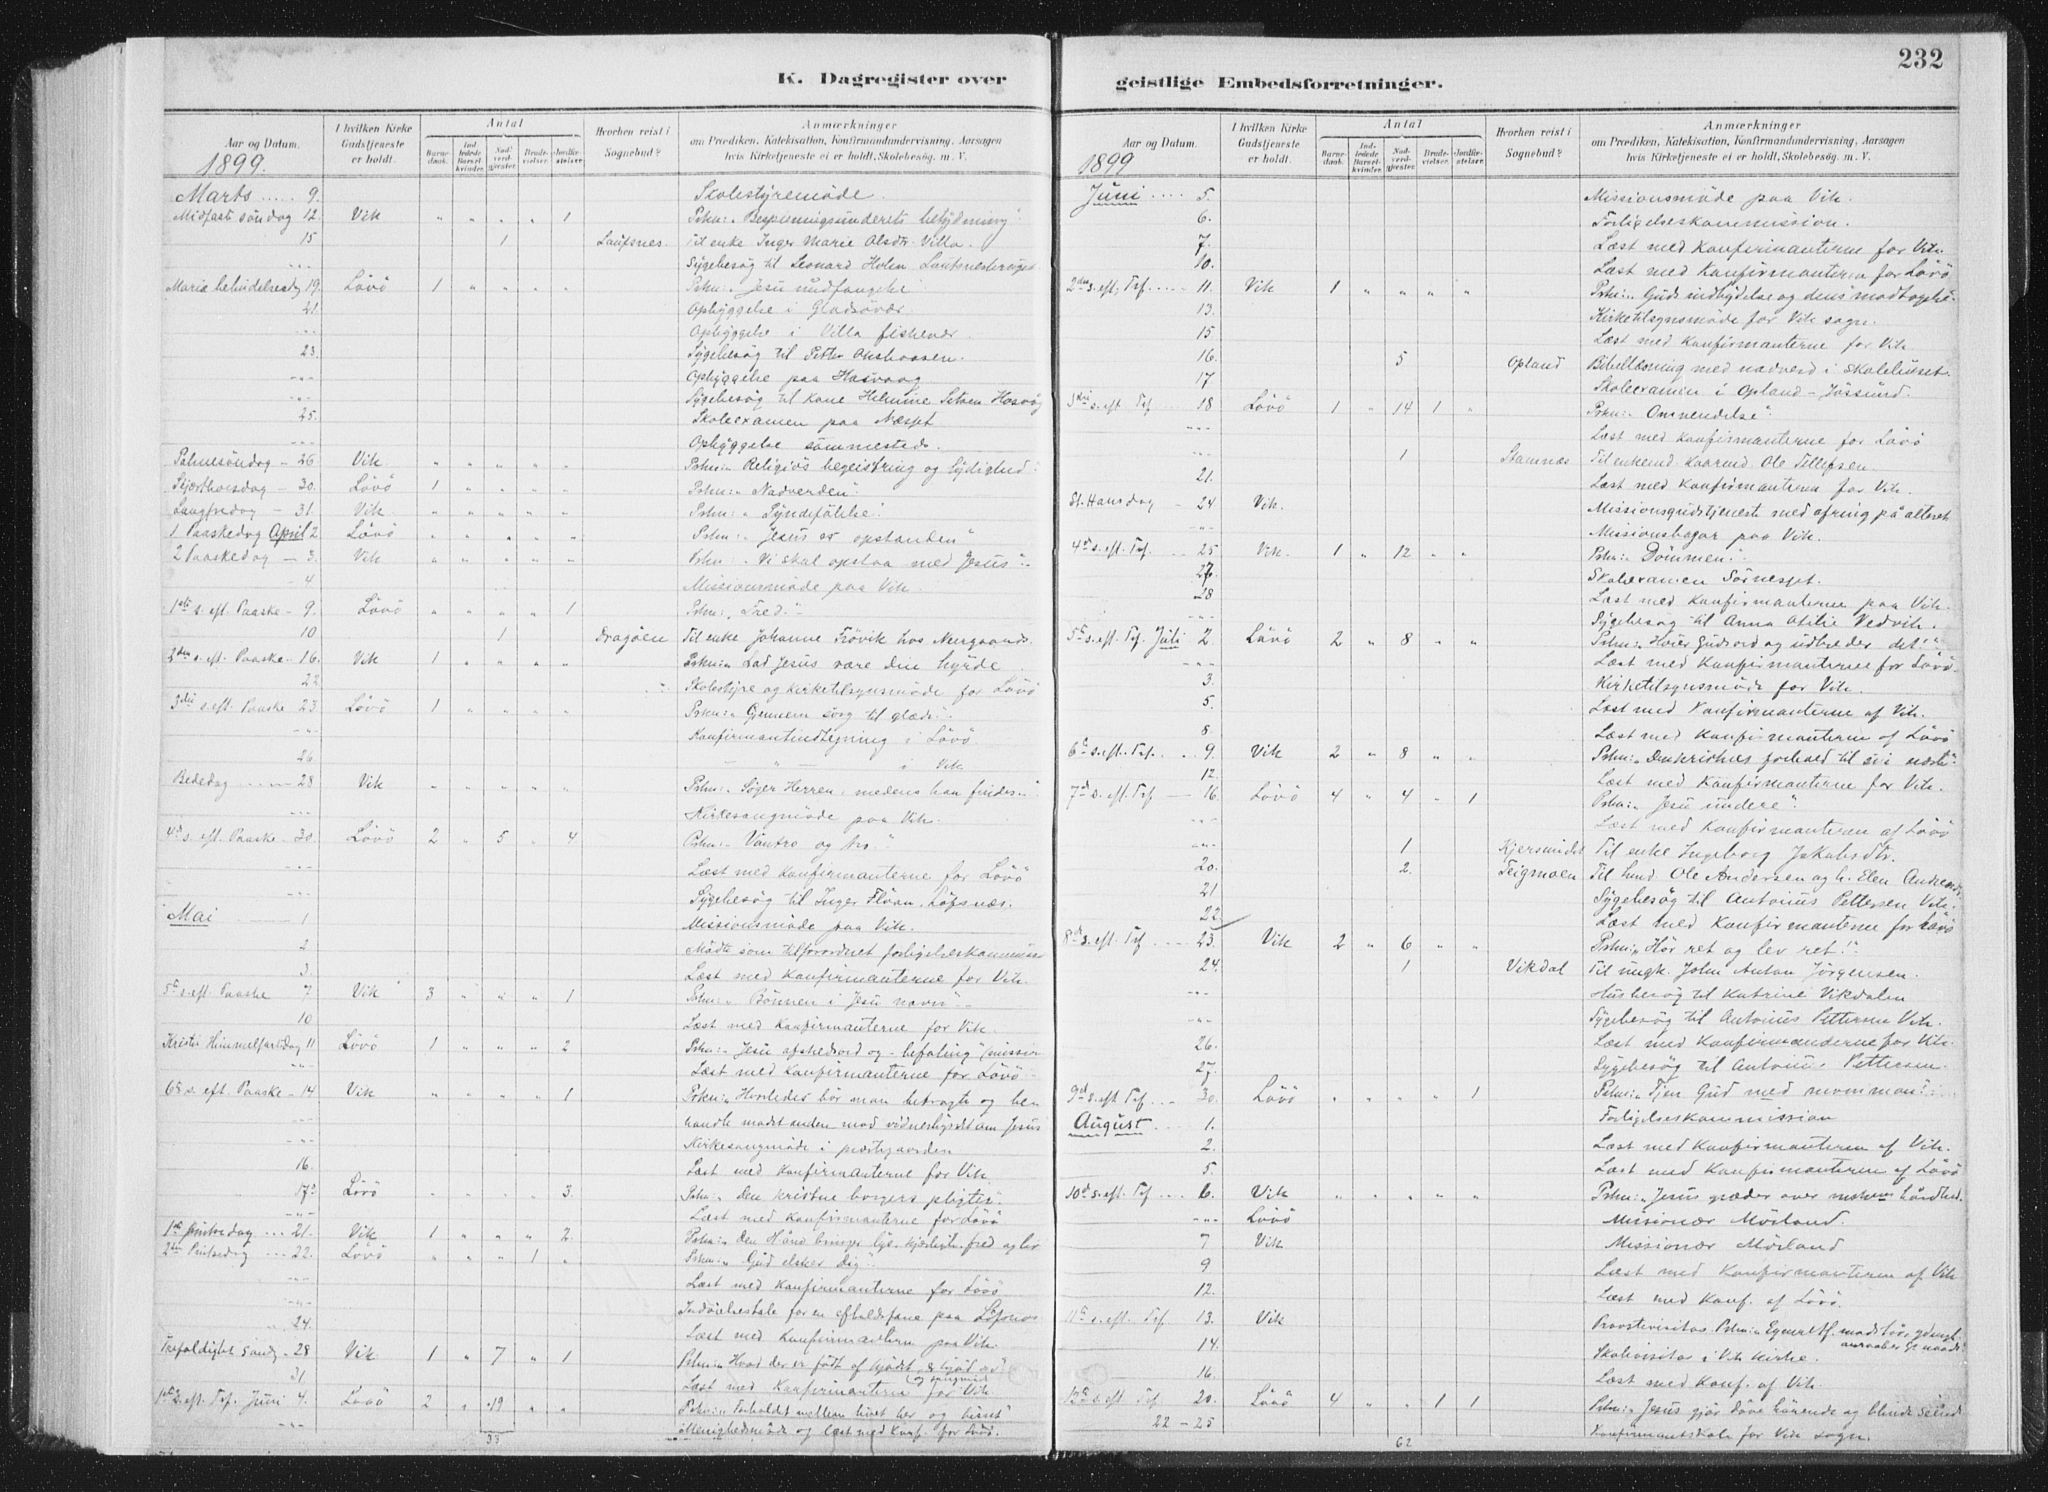 K. Dagregister over
Aar og Datum.
I hvilken Kirke Gudstjeneste er holdt.
Antal
Barnedaab.
Indledede Barselkvinder.
Nadverdgjester.
Brudevielser.
Jordfæstelser.
Hvorhen reist i Sognebud?
Anmærkninger
om Prædiken, Katekisation, Konfirmandundervisning, Aarsagen
hvis Kirketjeneste ei er holdt, Skolebesøg. m. V.
1899.
Marts ..... 9. Skolestyremöde.
Midfastesöndag 12. Vik " " " " 1 Prkn: "Bespisningsunderets betydning".
15 1 Laufsnes. Til enke Inger Marie Olsdtr. Villa.
-"- Sygebesög til Leonard Holm
Maria bebudelsesdg 19. Lövö 1 " " " " Prkn: "Jesu undfangelse
21. Opbyggelse i
-"- Opbyggelse i Villa fiskevær
23. Sygebesög til Petter
-"- Opbyggelse paa Hasvaag
-"- Sygebesög til kone Helmine
25. Skoleexamen paa Næsset
-"- Opbyggelse sammesteds.
Palmesöndag - 26 Vik " " " " " Prkn: "Religiös begeistring og lydighed".
Skjærthorsdag - 30. Lövö 1 " " " " Prkn: "Nadverden".
Langfredag - 31. Vik " " " " " Prkn: "Syndefölelse".
1 Paaskedag April 2 Lövö " " " " " Prkn: "Jesus er opstanden"
2 Paaskedag - 3. Vik " " " " " Prkn: "Vi skal opstaa med Jesus".
- 4 Missionsmöde paa Vik.
1ste s. eft. Paaske - 9. Lövö " " " " 1 Prkn: "Fred."
10 1 Dragöen Til enke Johanne Frövik hos
2den s. eft. Paaske - 16. Vik 1 " " " " Prkn: "Lad Jesus være din hyrde
22 Skolestyre og kirketilsynsmöde for Lövö
3die s. eft. Paaske 23 Lövö 1 " " " " Prkn: "Gjennem sorg til glæde".
-"- Konfirmantindtegning i Lövö.
26 - " - i Vik
Bededag ---- 28 Vik " " " " " Prkn: "Söger Herren, medens han findes."
-"- Kirkesangmöde paa Vik.
4de s. eft. Paaske - 30. Lövö 2 " 5 " 4 Prkn: "Vantro og tro."
-"- Læst med Konfirmanterne for Lövö
-"- Sygebesög til Inger Flövn, Löfsnæs.
Mai --- 1 Missionsmöde paa Vik.
2 Mödte som tilforordnet forligelseskommissær
3 Læst med Konfirmanterne for Vik.
5te s. eft. Paaske 7 Vik 3 " " " 1 Prkn: "Bönnen i Jesu navn".
10 Læst med Konfirmanterne for Vik.
Kristi Himmelfartsdag 11 Lövö 1 " " " 2 Prkn: "Jesu afskedsord og -befaling" (mission
-"- Læst med Konfirmanterne for Lövö.
6te s. eft. Paaske - 14 Vik " " " " 1 Prkn: "Hvorledes bör man betragte og be
handle modstanden mod vidnesbyrdet om Jesus
-"- Kirkesangmöde i præstgaarden
16. Læst med Konfirmanterne for Vik
17de Lövö " " " " 3. Prkn: "Den kristne borgers pligter".
-"- Læst med Konfirmanterne for Lövö
1ste Pintsedag ... 21. Vik 1 " " " 2. Prkn: "Den Hellig Aand bringer lys, kjærlighed, fred og liv
2den Pintsedag ... 22. Lövö " " " 1 " Prkn: "Gud elsker dig".
-"- Læst med Konfirmanterne for Lövö
-"- Indvielsestale for en afholdsfane paa Löfsnæs
24. Læst med Konfirmanterne paa Vik.
Trefoldigheds söndg - 28 Vik 1 " 7 " 1 Prkn: "Hvad der er födt af kjödet, er kjöd osv"
31. Læst med Konfirmanterne for Vik
1ste s. eft. Tref. Juni 4. Lövö 2 " 19 " " Prkn: "Forholdet mellem livet her og hisset"
-"- Menighedsmöde og læst med Konf. for Lövö.
35
geistlige Embedsforretninger.
232
Aar og Datum.
I hvilken Kirke Gudstjeneste er holdt.
Antal
Barnedaab.
Indledede Barselkvinder.
Nadverdgjester.
Brudevielser.
Jordfæstelser.
Hvorhen reist i Sognebud?
Anmærkninger
om Prædiken, Katekisation, Konfirmandundervisning, Aarsagen
hvis Kirketjeneste ei er holdt, Skolebesøg. m. V.
1899
Juni .... 5. Missionsmöde paa Vik.
6. Forligelseskommission.
7. Læst med Konfirmanterne for Vik.
10. Læst med Konfirmanterne for Lövö
2den s. eft. Tref. ..... 11. Vik 1 " " " " Prkn: "Guds indbydelse og dens modtagelse".
13. Kirketilsynsmöde for Vik sogn.
15 Læst med Konfirmanterne for Vik
16. 5 Opland Bibellæsning med nadverd i Skolehuset.
17 Skoleexamen i Opland - Jössund.
3die s. eft. Tref. ... 18 Lövö 1 " 14 1 " Prkn: "Omvendelse".
-"- Læst med Konfirmanterne for Lövö
-"- 1 Stamnæs Til enkemd. Ole Tollefsen.
21. Læst med Konfirmanterne for Vik.
St. Hansdag - 24 Vik. Missionsgudstjeneste med ofring på alteret
-"- Missionsbazar paa Vik.
4de s. eft. Tref. .. 25 Vik. 1 " 12 " " Prkn: "Dömmen".
27. Skoleexamen Sörnesset.
28 Læst med Konfirmanterne paa Vik.
Sygebesög til Anna Otilie Vedvik.
5te s. eft. Tref. Juli 2. Lövö 2 " 8 " " Prkn: "Hörer Guds ord og udbreder det".
-"- Læst med Konfirmanterne for Lövö.
3. Kirketilsynsmöde for Vik.
5. Læst med Konfirmanterne af Vik.
8 Læst med Konfirmanterne af Lövö
6te s. eft. Tref. .. 9 Vik 2 " 8 " " Prkn: "Den kristnes forhold til sin næste".
12. Læst med Konfirmanterne for Vik.
7de s. eft. Tref - 16. Lövö 4 " 4 " 1 Prkn: "Jesu undere".
-"- Læst med Konfirmanterne af Lövö
-"- 1 Til enke Ingeborg Jakobsdtr.
20. 2. Teigmoen Til husmd. Ole Andersen og h. Elen
21 Sygebesög til Antonius Pettersen Vik.
22 Læst med Konfirmanterne for Lövö
8de s. eft. Tref .... 23. Vik 2 " 6 " " Prkn: "Hör ret og lev ret!"
24. 1 Vikdal Til ungk. John Anton Jörgensen.
-"- Husbesög til Katrine Vikdalen
-"- Sygebesög til Antonius Pettersen Vik.
26. Læst med Konfirmanderne for Vik.
27. Sygebesög til Antonius Pettersen.
9de s. eft Tref ... 30. Lövö " " " " 1 Prkn: "Tjen Gud med mammon".
August ... 1. Forligelseskommission
2. Læst med Konfirmanterne af Vik.
5. Læst med Konfirmanterne af Lövö
10de s. eft. Tref .... 6. Vik " " " " " Prkn: "Jesus græder over hårdhed.
-"- Lövö Missionær Mörland.
7 Vik Missionær Mörland
9 Læst med Konfirmanterne af Vik
12. Læst med Konf. af Lövö.
11te s. eft. Tref. 13. Vik Provstevisitas
14. Skolevisitas i Vik Kirke.
16. Læst med Konf. af Vik.
20. Lövö 4 " " 1 1 Prkn: "Jesus gjör döve hörende og blinde seende
22 - 25 Konfirmantskole for Vik sogn.
62